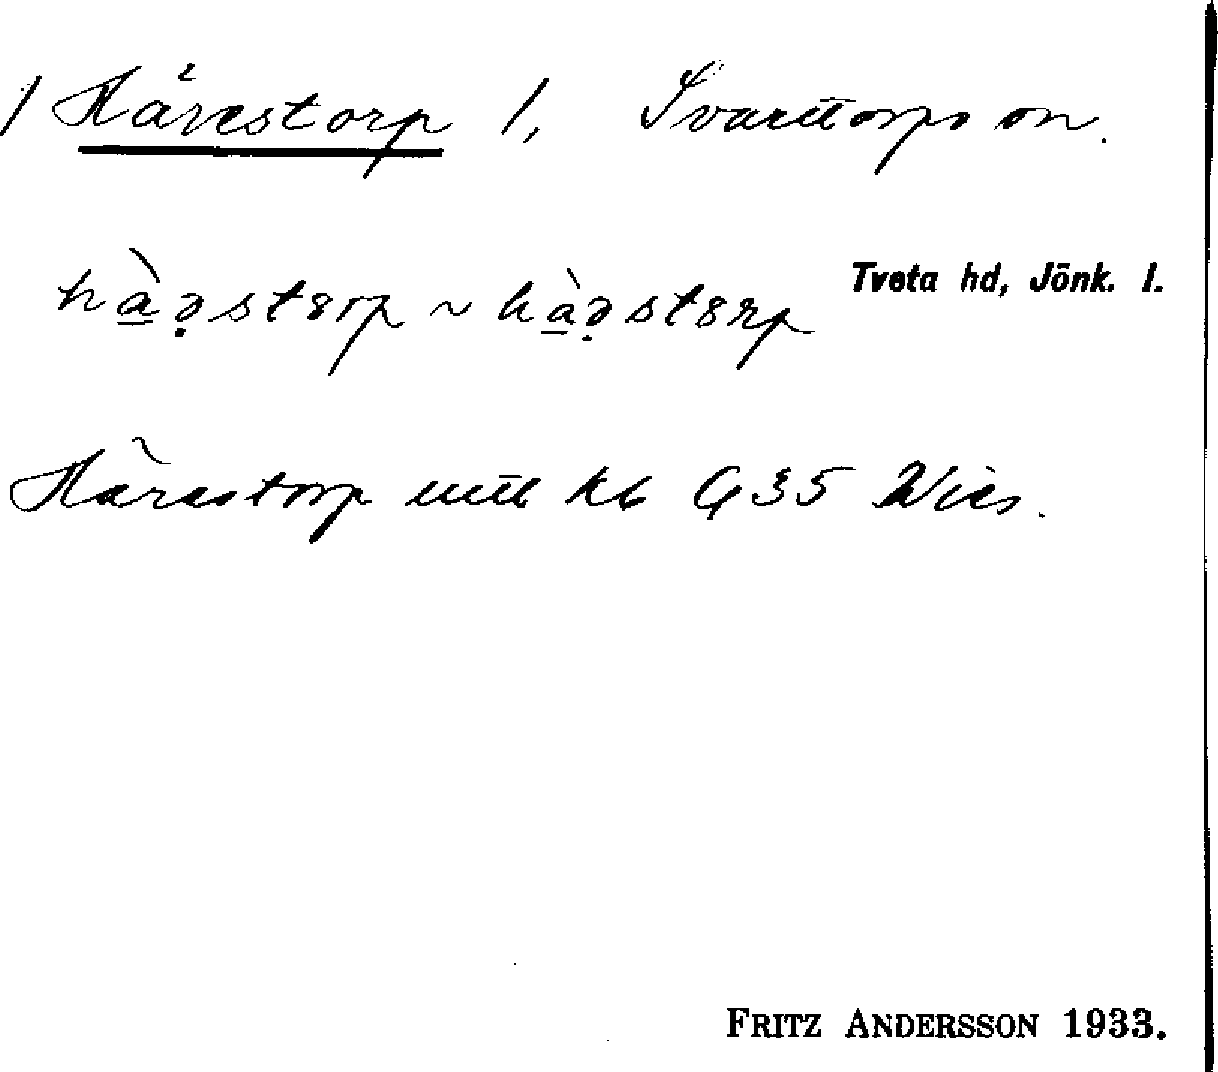 1 Hårestorp 1, Svarttorps sn.
Tveta hd, Jönk. l.
hàə̣stɞrp ~ hàə̣stɞrp
Hårestorp kb G 35
FRITZ ANDERSSON 1933.